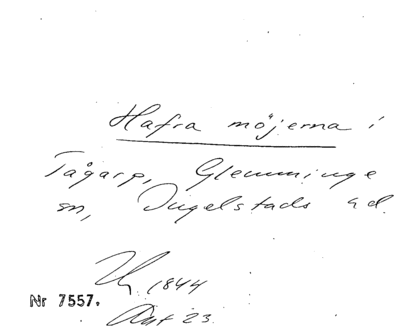 Hafra möjerna i
Tågarp, Glemminge
sn, Ingelstads hd.
1844
Nr 7557.
Akt 23.